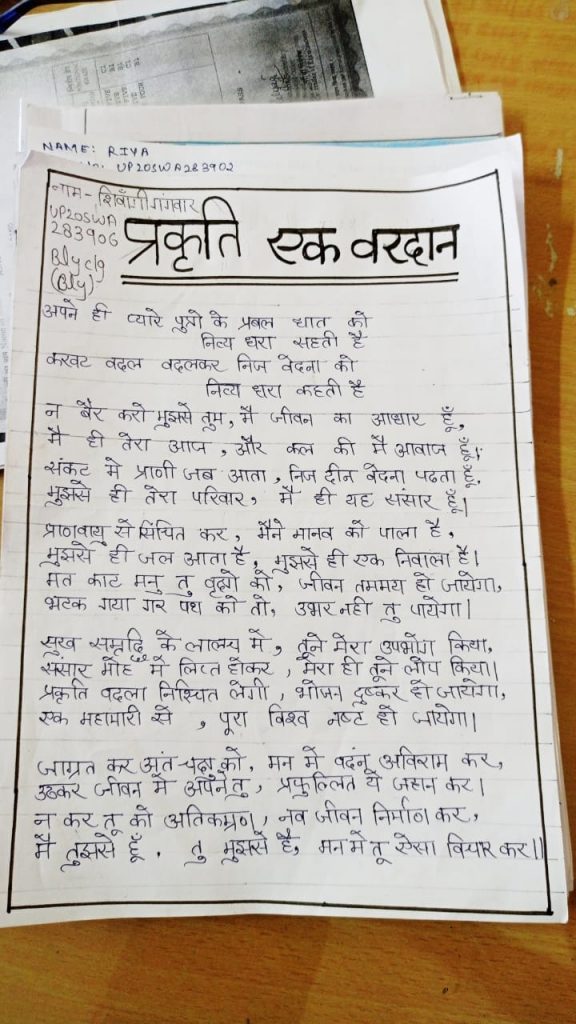 NAME: RIYA
UP20SWA283902
नाम- शिवाँगी गंगवार
UP20SWA
283906
Bly clg
(Bly)
प्रकृति एक वरदान
अपने ही प्यारे पुत्रो के प्रबल घात को
नित्य धरा सहती है
करवट बदल बदलकर निज वेदना को
नित्य धरा कहती है
न बैर करो मुझसे तुम, मै जीवन का आधार हूँ,
मै ही तेरा आज, और कल की मै आवाज हूँ।
संकट मे प्राणी जब आता, निज दीन वेदना पढता हूँ,
मुझसे ही तेरा परिवार, मै ही यह संसार हूँ।
प्राणवायु से सिंचित कर, मैने मानव को पाला है,
मुझसे ही जल आता है, मुझसे ही एक निवाला है।
मत काट मनु तु वृक्षो को, जीवन तममय हो जायेगा,
भटक गया गर पथ को तो, उभर नही तु पायेगा।
सुख समृद्धि के लालच मे, तूने मेरा उपभोग किया,
संसार मोह मे लिप्त होकर, मेरा ही तूने लोप किया।
प्रकृति बदला निश्चित लेगी, भोजन दुष्कर हो जायेगा,
एक महामारी से, पूरा विश्व नष्ट हो जायेगा।
जाग्रत कर अंत-चक्षु को, मन मे वदंन अविराम कर,
उठकर जीवन मे अपने तु, प्रफुल्लित ये जहान कर।
न कर तू को अतिकम्रण, नव जीवन निर्माण कर,
मै तुझसे हूँ, तु मुझसे है, मन मे तू ऐसा विचार कर॥